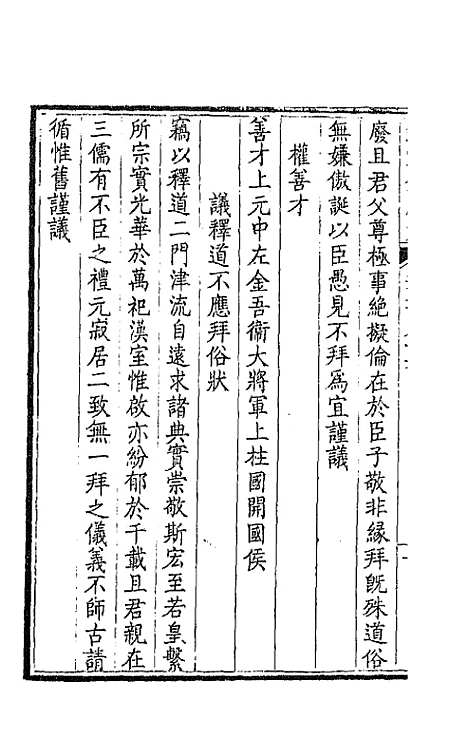 廢且君父尊極事絶擬倫在於臣子敬非緣拜旣殊道俗
無嫌傲誕以臣愚見不拜爲宜謹議
權善才
善才上元中左金吾衞大將軍上柱國開國侯
議釋道不應拜俗狀
竊以釋道二門津流自遠求諸典實崇敬斯宏至若皇繫
所宗實光華於萬祀漢室惟啟亦紛郁於千載且君親在
三儒有不臣之禮元寂居二致無一拜之儀義不師古請
循惟舊謹議